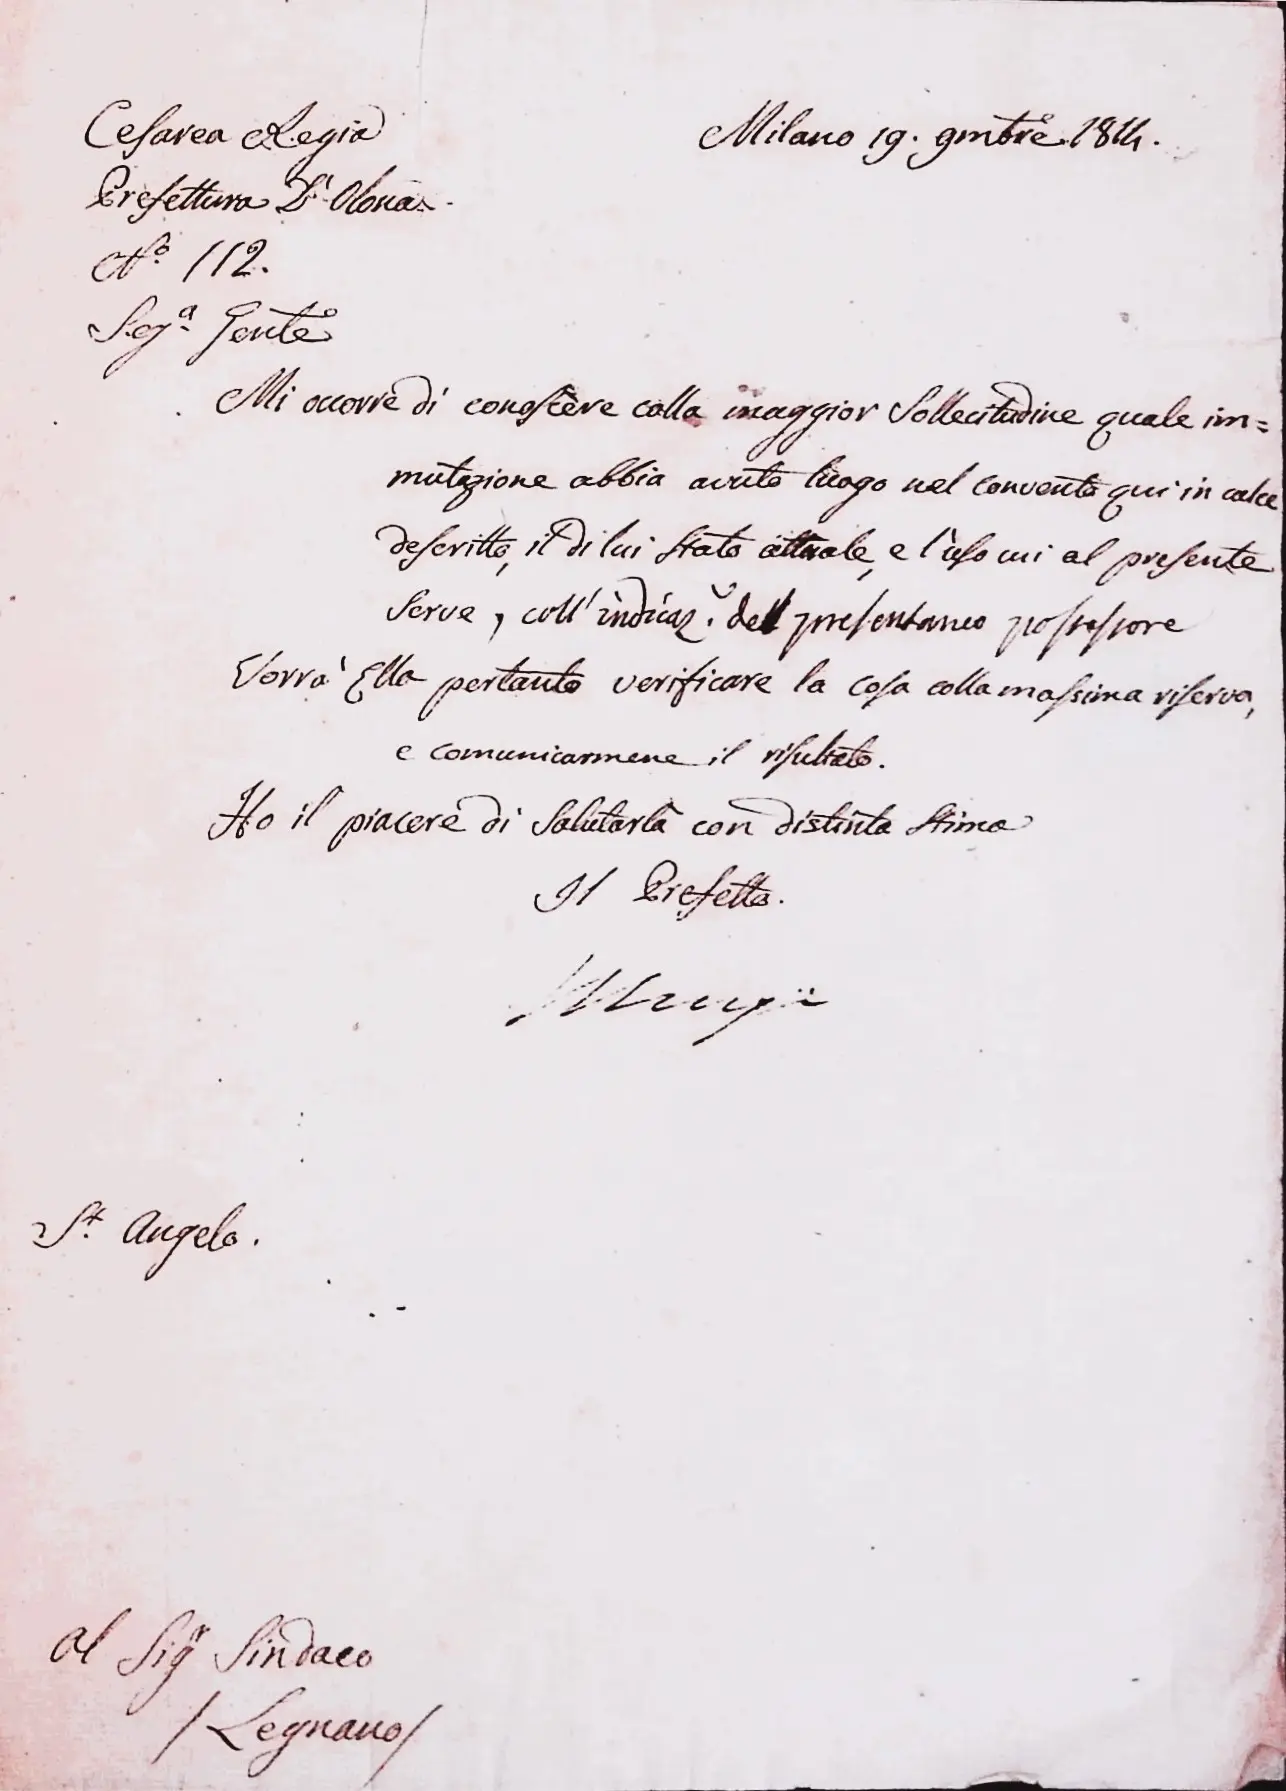 Cesarea e Regia
Milano 19. 9mbre 1814.
Prefettura D'Olona
N.° 112.
Seg.a Gen.le
Mi occorre di conoscere colla maggior sollecitudine quale im=
mutazione abbia avuto luogo nel convento qui in calce
descritto, il di lui stato attuale, e l'uso cui al presente
serve, coll'indicaz.e del presentaneo possessore
Vorrà Ella pertanto verificare la cosa colla massima riserva,
e comunicarmene il risultato.
Ho il piacere di salutarla con distinta stima
Il Prefetto.
St. Angelo.
Al Sigr Sindaco
/Legnano/